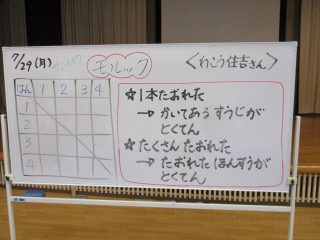 7/29(月)
モルック
〈わこう住吉さん〉
はん 1 2 3 4
1
2
3
4
☆1本たおれた
→かいてあるすうじが
とくてん
☆たくさんたおれた
→たおれたほんすうが
とくてん